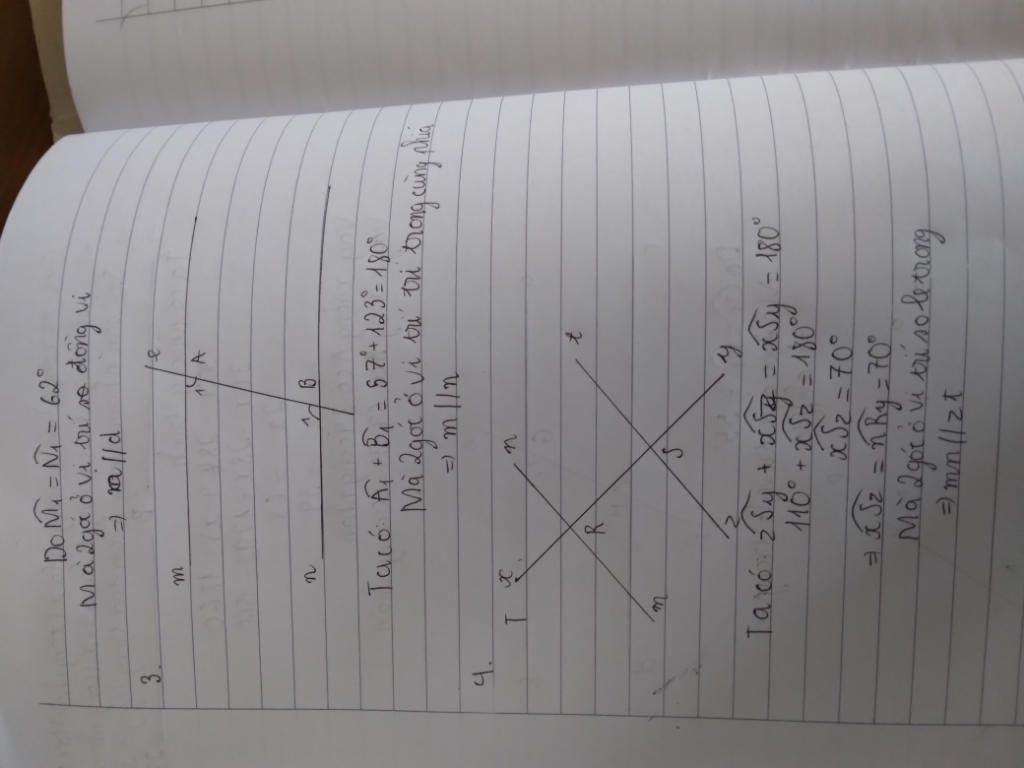 Do M̂₁ = N̂₁ = 62°
Mà 2 góc ở vị trí so đồng vị
⇒ // d
3.
m
c
1
A
n
1
B
Ta có: Â₁ + B̂₁ = 57° + 123° = 180°
Mà 2 góc ở vị trí trong cùng phía
⇒ m // n
4.
T
x
n
t
R
m
S
z
y
Ta có: zSy + xSz = xSy = 180°
110° + xSz = 180°
xSz = 70°
⇒ xSz = nRy = 70°
Mà 2 góc ở vị trí so le trong
⇒ mn // zt